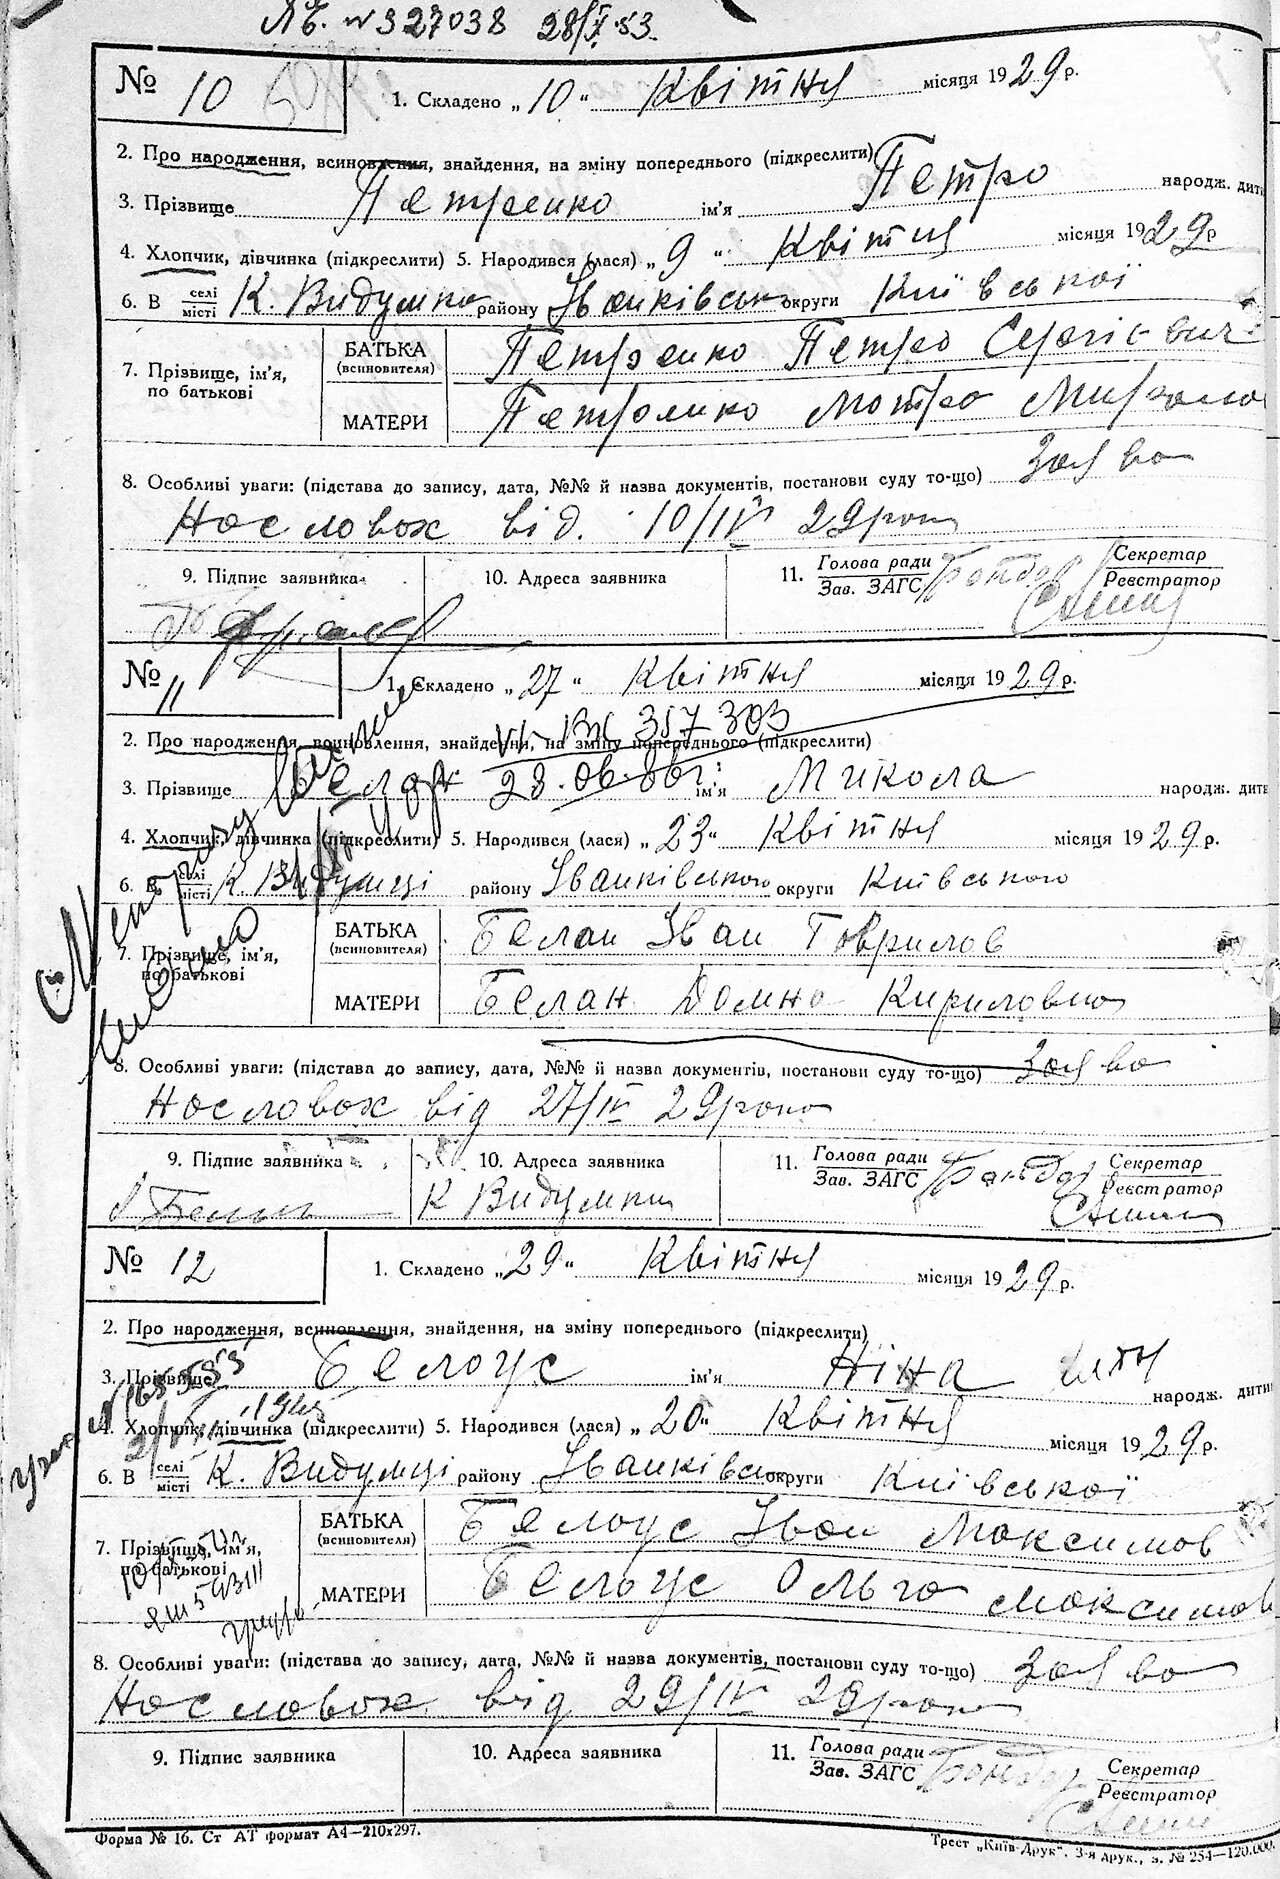 ЯБ. № 327038 28/X 53.
№ 10
1. Складено „10“ Квітня місяця 1929 р.
2. Про народження, всиновлення, знайдення, на зміну попереднього (підкреслити)
3. Прізвище Петренко ім'я Петро народж. дити
4. Хлопчик, дівчинка (підкреслити) 5. Народився (лася) „9“ Квітня місяця 1929 р
6. В селі місті К. Видумка району Іванківськ округи Київської
7. Прізвище, ім'я, по батькові
БАТЬКА (всиновителя) Петренко Петро Сергієвич
МАТЕРИ Петренко Мотра
8. Особливі уваги: (підстава до запису, дата, №№ й назва документів, постанови суду то-що) Заява
на словах від. 10/IV 29 року
9. Підпис заявника
10. Адреса заявника
11. Голова ради Зав. ЗАГС Бондар Секретар Реєстратор
№ 11
1. Складено „27“ Квітня місяця 1929 р.
357 303
2. Про народження, всиновлення, знайдення, на зміну попереднього (підкреслити)
3. Прізвище Белан 28.06.86г. ім'я Микола народж. дити
4. Хлопчик, дівчинка (підкреслити) 5. Народився (лася) „23“ Квітня місяця 1929 р.
6. В селі місті К Видумці району Іванківського округи Київського
7. Прізвище, ім'я, по батькові
БАТЬКА (всиновителя) Белан Іван Гаврилов
МАТЕРИ Белан Домна Кириловна
8. Особливі уваги: (підстава до запису, дата, №№ й назва документів, постанови суду то-що) Заява
на словах від 27/IV 29 року
9. Підпис заявника
10. Адреса заявника
К Видумка
11. Голова ради Зав. ЗАГС Бондар Секретар Реєстратор
№ 12
1. Складено „29“ Квітня місяця 1929 р.
2. Про народження, всиновлення, знайдення, на зміну попереднього (підкреслити)
3. Прізвище Белоус ім'я Ніна народж. дити
4. Хлопчик, дівчинка (підкреслити) 5. Народився (лася) „20“ Квітня місяця 1929 р.
6. В селі місті К. Видумці району Іванківськ округи Київської
7. Прізвище, ім'я, по батькові
БАТЬКА (всиновителя) Белоус Іван Максимов
МАТЕРИ Белоус Ольга Максимов
8. Особливі уваги: (підстава до запису, дата, №№ й назва документів, постанови суду то-що) Заява
на словах від 29/IV 29 року
9. Підпис заявника
10. Адреса заявника
11. Голова ради Зав. ЗАГС Бондар Секретар Реєстратор
Форма № 16. Ст АТ формат А4—210х297.
Трест „Київ-Друк“. 3-я друк., з. № 254—120.000.